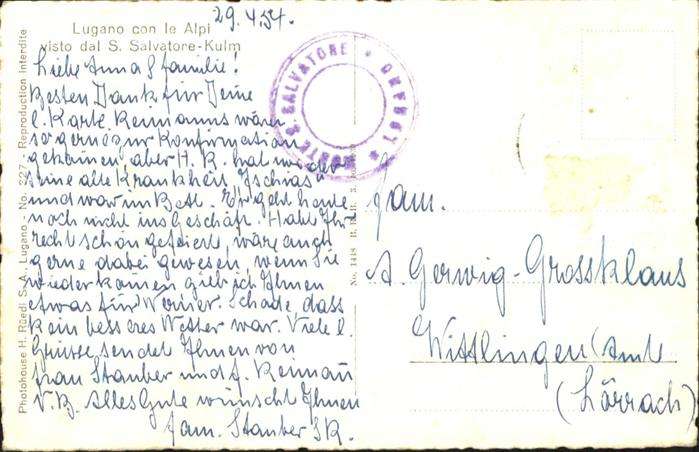 29.4.54.
Lugano con le Alpi
visto dal S. Salvatore-Kulm
Liebe Anna & familie!
Besten Dank für Deine
l. Karte Reimanns wären
so gerne zur Konfirmation
gekomen aber H. R. hat wieder
seine alte Krankheit Ischias
und war im Bett. Er geht heute
noch nicht ins Geschäft. Habt Ihr
recht schön gefeiert, wäre auch
gerne dabei gewesen, wenn Sie
wieder komen gieb ich Ihnen
etwas für Werner. Schade, dass
kein besseres Wetter war. Viele l.
Grüsse sendet Ihnen von
frau Stauber und f. Reimañ
N.B. Alles Gute wünscht Ihnen
fam. Stauber
Photohouse H. Rüedi S.A. Lugano - No. 327 - Reproduction Interdite
MONTE S. SALVATORE * LUGANO *
No. 1418
Fam.
A. Gerwig-Grossklaus
Wittlingen (Amt
(Lörrach)